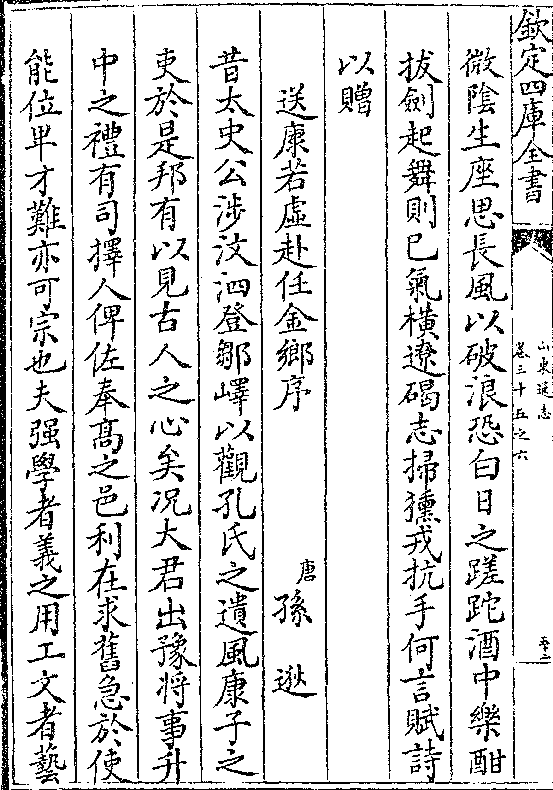 欽定四庫全書
山東通志
卷三十五之六
微陰生座思長風以破浪恐白日之蹉跎酒中樂酣
拔劍起舞則已氣橫遼碣志掃獯戎抗手何言賦詩
以贈
送康若虛赴任金鄉序
唐 孫逖
昔太史公涉汶泗登鄒嶧以觀孔氏之遺風康子之
吏於是邦有以見古人之心矣况大君出豫將事升
中之禮有司擇人俾佐奉髙之邑利在求舊急於使
能位卑才難亦可宗也夫强學者義之用工文者藝